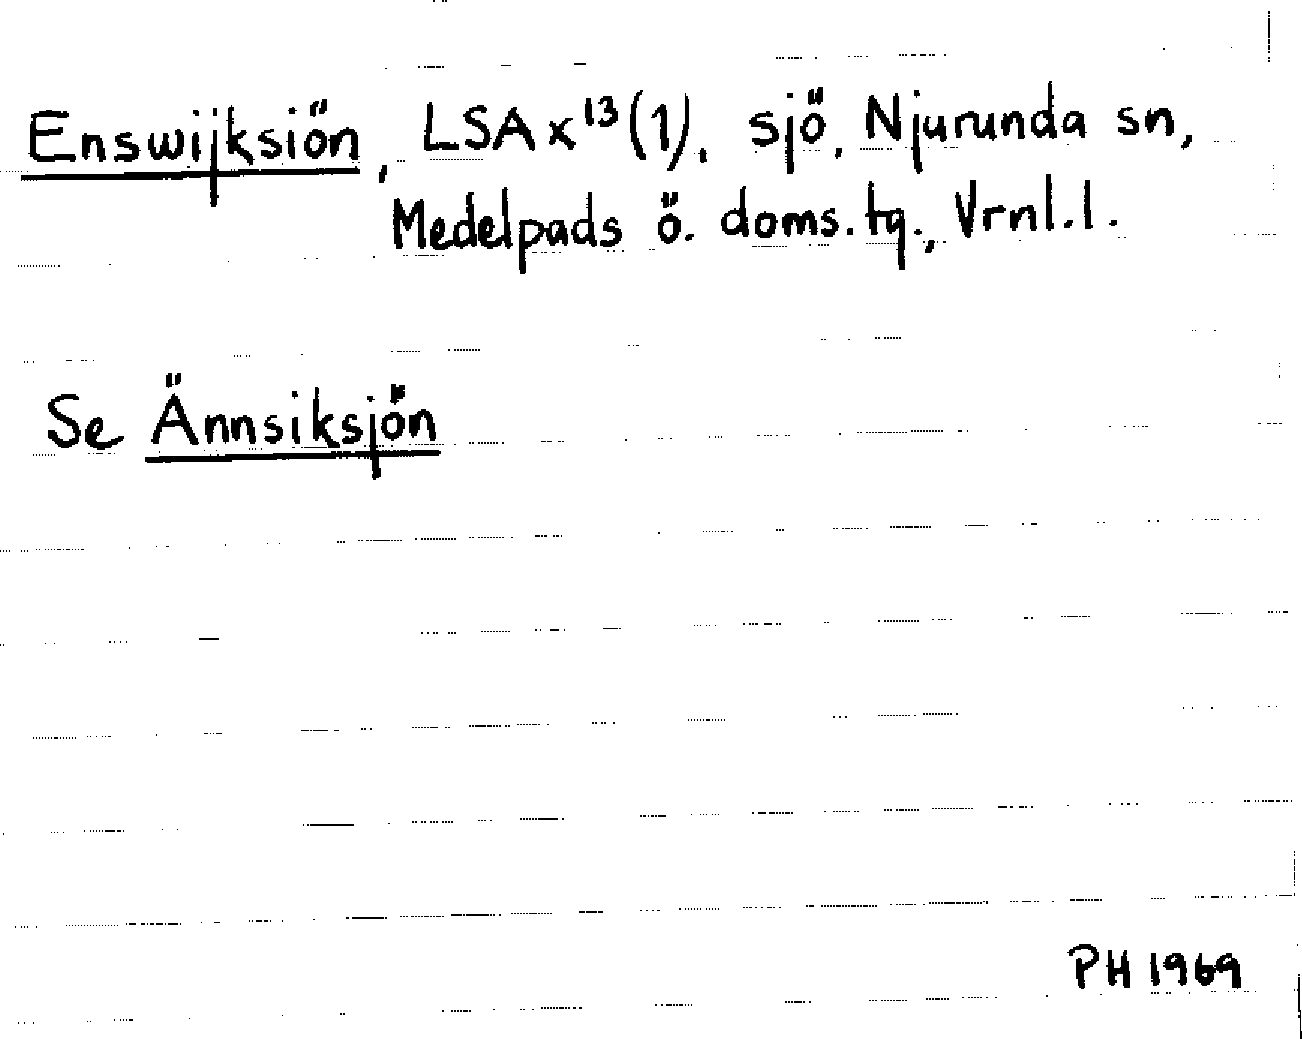 Enswijksiön, LSA x¹³(1). sjö, Njurunda sn,
Medelpads ö. doms.tg., Vrnl.l.
Se Ännsiksjön
PH 1969